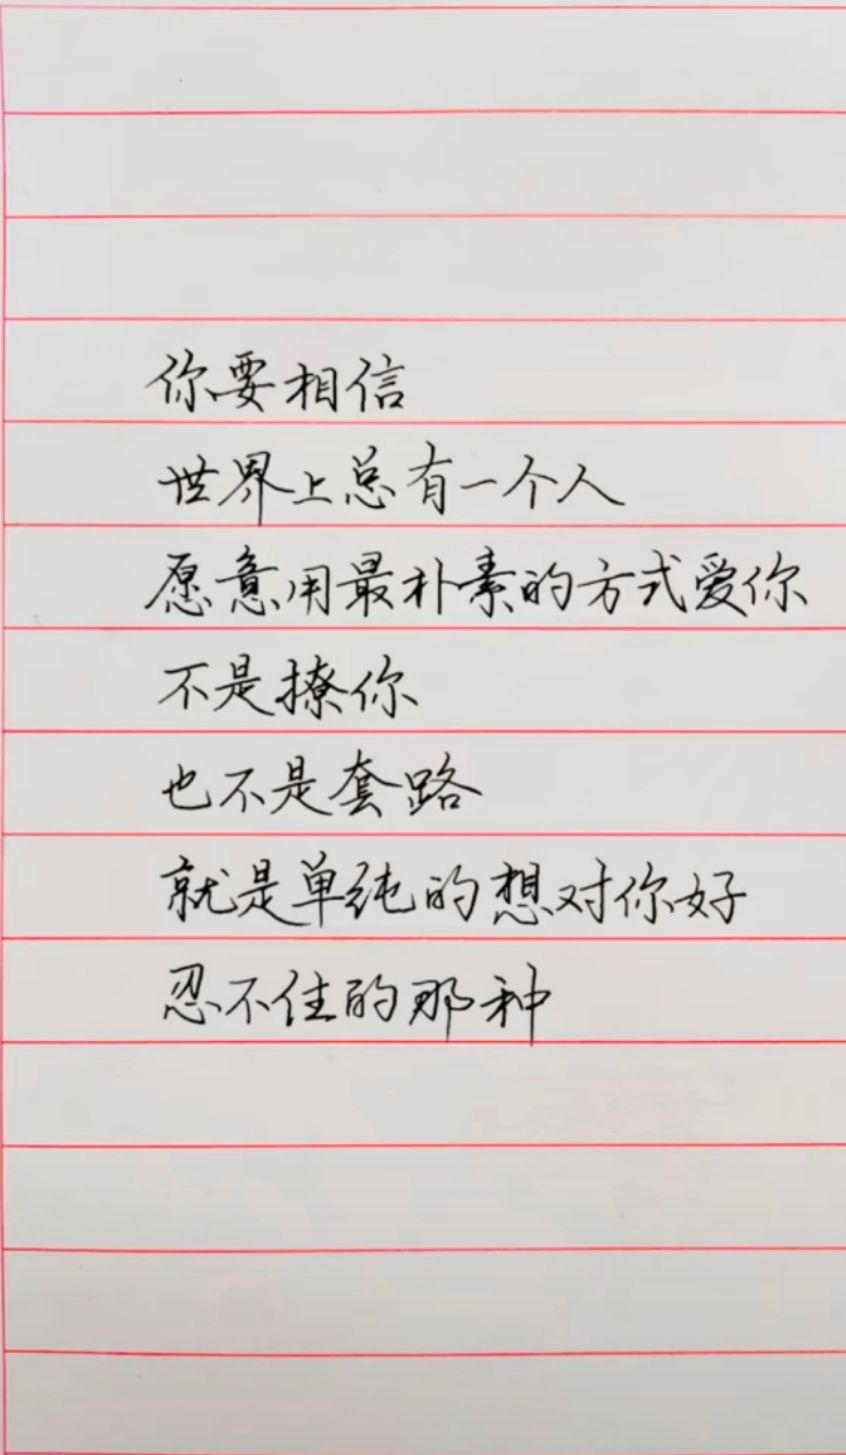 你要相信
世界上总有一个人
愿意用最朴素的方式爱你
不是撩你
也不是套路
就是单纯的想对你好
忍不住的那种